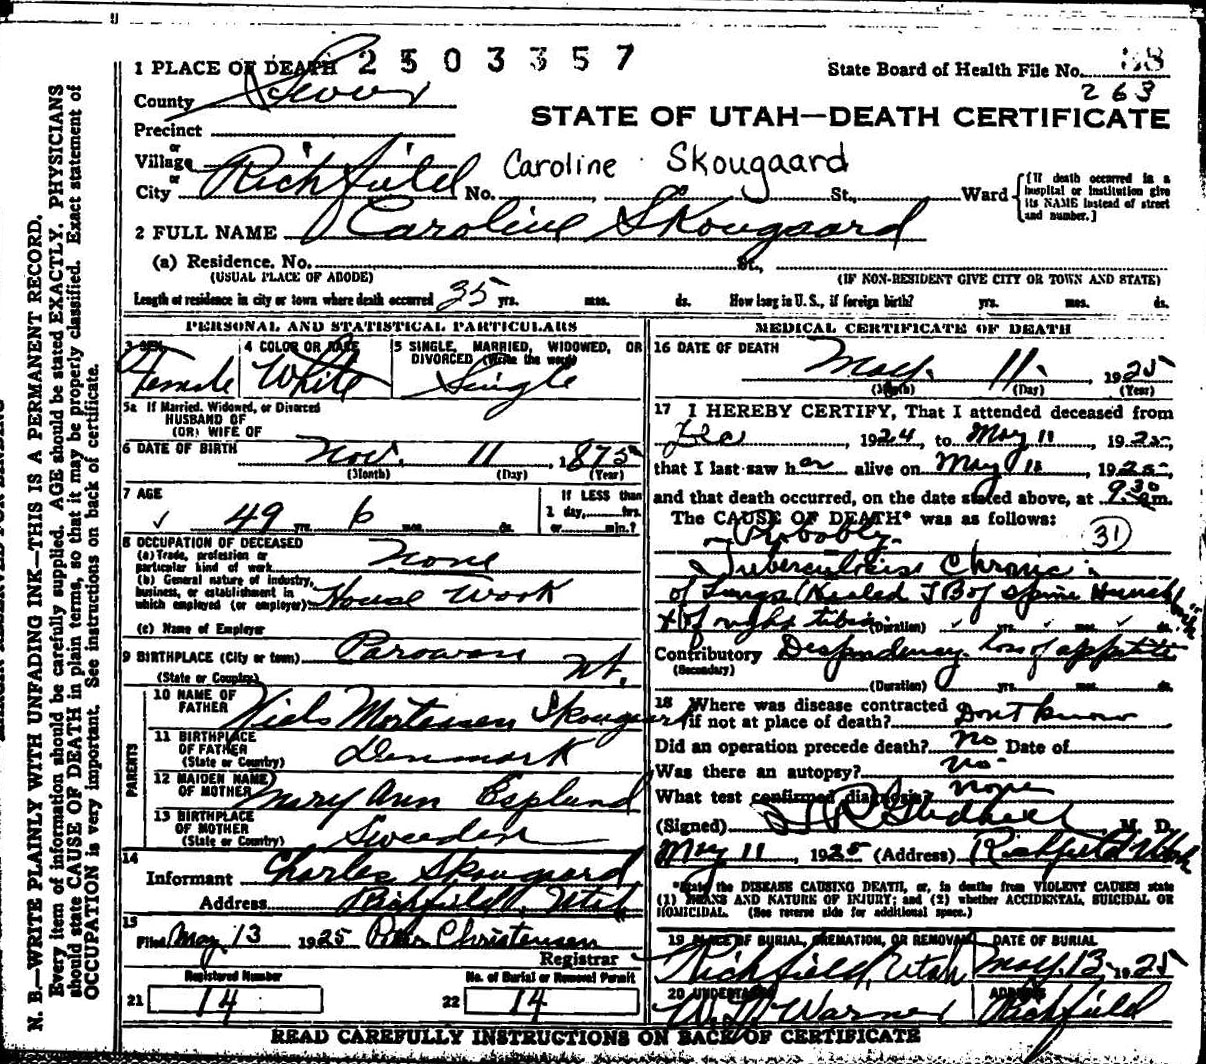 2503357
1 PLACE OF DEATH
State Board of Health File No. 58
263
County Sevier
STATE OF UTAH—DEATH CERTIFICATE
Precinct
or
Village
or
City Richfield No. St., Ward
Caroline Skougaard
{If death occurred in a hospital or institution give its NAME instead of street and number.}
2 FULL NAME Caroline Skougaard
(a) Residence. No. St.,
(USUAL PLACE OF ABODE) (IF NON-RESIDENT GIVE CITY OR TOWN AND STATE)
Length of residence in city or town where death occurred 35 yrs. mos. ds. How long in U. S., if foreign birth? yrs. mos. ds.
PERSONAL AND STATISTICAL PARTICULARS
3 SEX 4 COLOR OR RACE 5 SINGLE, MARRIED, WIDOWED, OR DIVORCED (Write the word)
Female White Single
5a If Married, Widowed, or Divorced
HUSBAND OF
(OR) WIFE OF
6 DATE OF BIRTH Nov. 11, 1875
(Month) (Day) (Year)
7 AGE
49 yrs. 6 mos. ds.
If LESS than
1 day, hrs.
or min.?
8 OCCUPATION OF DECEASED
(a) Trade, profession or
particular kind of work None
(b) General nature of industry,
business, or establishment in
which employed (or employer) House Work
(c) Name of Employer
9 BIRTHPLACE (City or town) Parowan
(State or Country) Ut.
PARENTS
10 NAME OF
FATHER Niels Mortensen Skougaard
11 BIRTHPLACE
OF FATHER
(State or Country) Denmark
12 MAIDEN NAME
OF MOTHER Mary Ann Esplund
13 BIRTHPLACE
OF MOTHER
(State or Country) Sweeden
14
Informant Charles Skougaard
Address Richfield, Utah
15
Filed May 13 1925 Peter Christensen
Registrar
Registered Number No. of Burial or Removal Permit
21 14 22 14
MEDICAL CERTIFICATE OF DEATH
16 DATE OF DEATH
May. 11. , 1925
(Month) (Day) (Year)
17 I HEREBY CERTIFY, That I attended deceased from
Dec , 1924, to May 11 , 1925,
that I last saw her alive on May 11 , 1925
and that death occurred, on the date stated above, at 9:30 m.
The CAUSE OF DEATH* was as follows:
Probably 31
Tuberculosis Chronic
of Lungs (Healed TB of Spine Hunchback
& of right tibia
(Duration) yrs. mos. ds.
Contributory Despondency loss of appetite
(Secondary)
(Duration) yrs. mos. ds.
18 Where was disease contracted
if not at place of death? Dont know
Did an operation precede death? no Date of
Was there an autopsy? no
What test confirmed diagnosis? none
(Signed) M. D.
May 11 , 1925 (Address) Richfield Utah
*State the DISEASE CAUSING DEATH, or, in deaths from VIOLENT CAUSES state
(1) MEANS AND NATURE OF INJURY; and (2) whether ACCIDENTAL, SUICIDAL OR
HOMICIDAL. (See reverse side for additional space.)
19 PLACE OF BURIAL, CREMATION, OR REMOVAL DATE OF BURIAL
Richfield, Utah May. 13, 1925
20 UNDERTAKER ADDRESS
Warner Richfield
READ CAREFULLY INSTRUCTIONS ON BACK OF CERTIFICATE
N. B.—WRITE PLAINLY WITH UNFADING INK—THIS IS A PERMANENT RECORD.
Every item of information should be carefully supplied. AGE should be stated EXACTLY. PHYSICIANS
should state CAUSE OF DEATH in plain terms, so that it may be properly classified. Exact statement of
OCCUPATION is very important. See instructions on back of certificate.